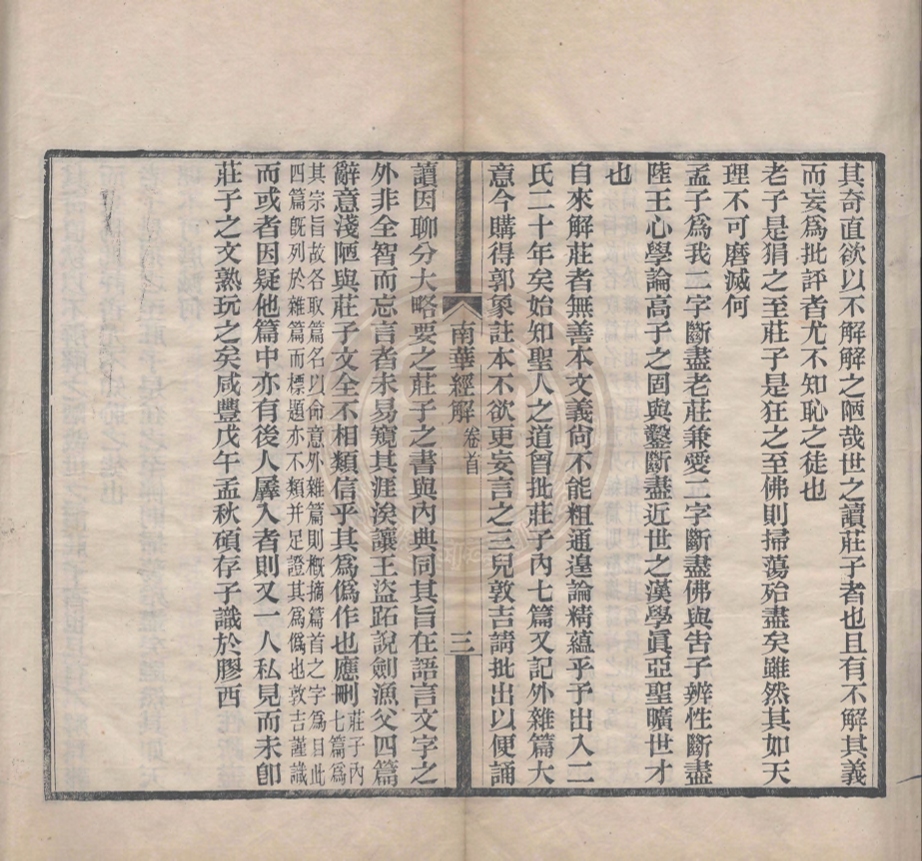 其奇直欲以不解解之陋哉世之讀莊子者也且有不解其義
而妄爲批評者尤不知恥之徒也
老子是狷之至莊子是狂之至佛則掃蕩殆盡矣雖然其如天
理不可磨滅何
孟子爲我二字斷盡老莊兼愛二字斷盡佛與告子辨性斷盡
陸王心學論高子之固與鑿斷盡近世之漢學眞亞聖曠世才
也
自來解莊者無善本文義尙不能粗通遑論精蘊乎予出入二
氏二十年矣始知聖人之道曾批莊子內七篇又記外雜篇大
意今購得郭象註本不欲更妄言之三兒敦吉請批出以便誦
南華經解 卷首 三
讀因聊分大略要之莊子之書與內典同其旨在語言文字之
外非全智而忘言者未易窺其涯涘讓王盜跖說劍漁父四篇
辭意淺陋與莊子文全不相類信乎其爲僞作也應刪
莊子內七篇爲
其宗旨故各取篇名以命意外雜篇則槪摘篇首之字爲目此
四篇旣列於雜篇而標題亦不類并足證其爲僞也敦吉謹識
而或者因疑他篇中亦有後人羼入者則又一人私見而未卽
莊子之文熟玩之矣咸豐戊午孟秋碩存子識於膠西